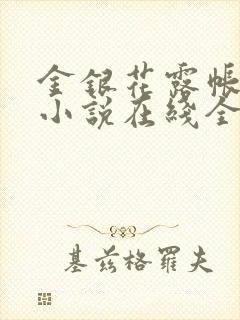 金銀花露帳
小説在綫全
基兹格羅夫